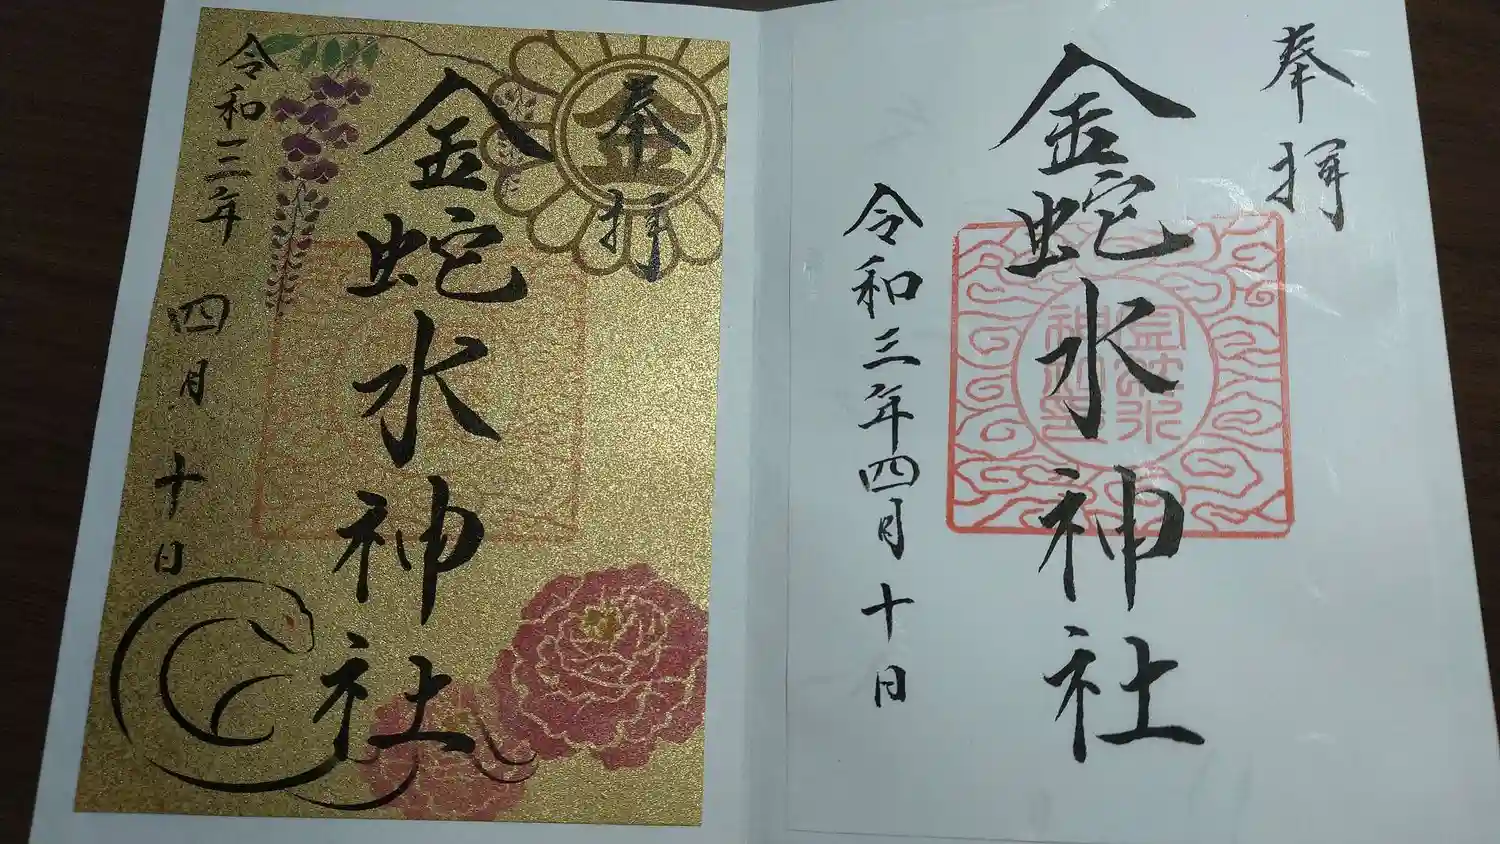 奉拝
金蛇水神社
令和三年四月十日
金
奉拝
金蛇水神社
令和三年 四月十日